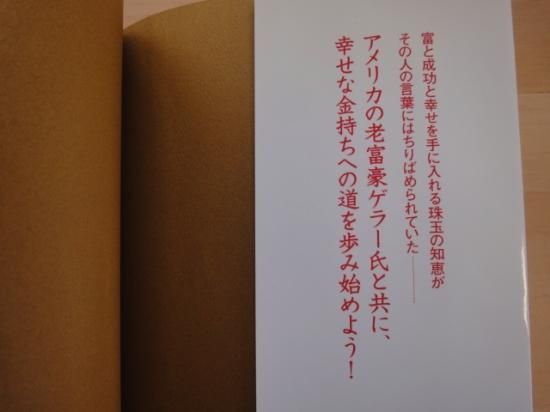 富と成功と幸せを手に入れる珠玉の知恵が
その人の言葉にはちりばめられていた――
アメリカの老富豪ゲラー氏と共に、
幸せな金持ちへの道を歩み始めよう！